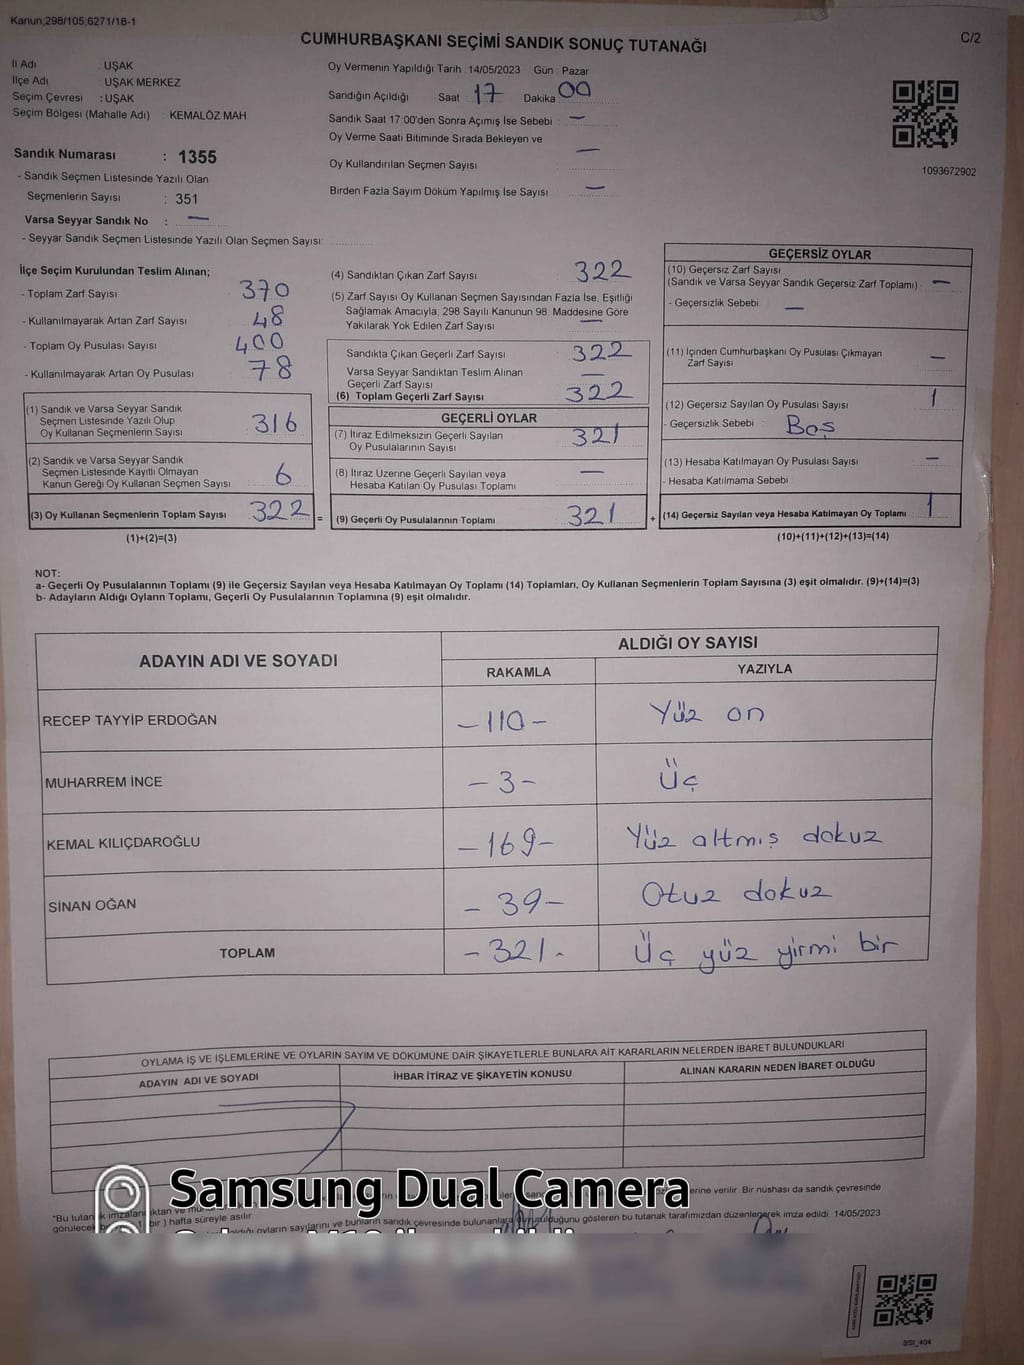 Kanun;298/105,6271/18-1
C/2
CUMHURBAŞKANI SEÇİMİ SANDIK SONUÇ TUTANAĞI
İl Adı : UŞAK
İlçe Adı : UŞAK MERKEZ
Seçim Çevresi : UŞAK
Seçim Bölgesi (Mahalle Adı) : KEMALÖZ MAH
Sandık Numarası : 1355
- Sandık Seçmen Listesinde Yazılı Olan
Seçmenlerin Sayısı : 351
Varsa Seyyar Sandık No : —
- Seyyar Sandık Seçmen Listesinde Yazılı Olan Seçmen Sayısı:
Oy Vermenin Yapıldığı Tarih : 14/05/2023 Gün : Pazar
Sandığın Açıldığı Saat : 17 Dakika : 00
Sandık Saat 17:00'den Sonra Açımış İse Sebebi : —
Oy Verme Saati Bitiminde Sırada Bekleyen ve
Oy Kullandırılan Seçmen Sayısı : —
Birden Fazla Sayım Döküm Yapılmış İse Sayısı : —
1093672902
İlçe Seçim Kurulundan Teslim Alınan;
- Toplam Zarf Sayısı : 370
- Kullanılmayarak Artan Zarf Sayısı : 48
- Toplam Oy Pusulası Sayısı : 400
- Kullanılmayarak Artan Oy Pusulası : 78
(1) Sandık ve Varsa Seyyar Sandık
Seçmen Listesinde Yazılı Olup
Oy Kullanan Seçmenlerin Sayısı : 316
(2) Sandık ve Varsa Seyyar Sandık
Seçmen Listesinde Kayıtlı Olmayan
Kanun Gereği Oy Kullanan Seçmen Sayısı : 6
(3) Oy Kullanan Seçmenlerin Toplam Sayısı : 322 =
(1)+(2)=(3)
(4) Sandıktan Çıkan Zarf Sayısı : 322
(5) Zarf Sayısı Oy Kullanan Seçmen Sayısından Fazla İse, Eşitliği
Sağlamak Amacıyla; 298 Sayılı Kanunun 98. Maddesine Göre
Yakılarak Yok Edilen Zarf Sayısı : —
Sandıkta Çıkan Geçerli Zarf Sayısı : 322
Varsa Seyyar Sandıktan Teslim Alınan
Geçerli Zarf Sayısı : —
(6) Toplam Geçerli Zarf Sayısı : 322
GEÇERLİ OYLAR
(7) İtiraz Edilmeksizin Geçerli Sayılan
Oy Pusulalarının Sayısı : 321
(8) İtiraz Üzerine Geçerli Sayılan veya
Hesaba Katılan Oy Pusulası Toplamı : —
(9) Geçerli Oy Pusulalarının Toplamı : 321 +
GEÇERSİZ OYLAR
(10) Geçersiz Zarf Sayısı
(Sandık ve Varsa Seyyar Sandık Geçersiz Zarf Toplamı) : —
- Geçersizlik Sebebi : —
(11) İçinden Cumhurbaşkanı Oy Pusulası Çıkmayan
Zarf Sayısı : —
(12) Geçersiz Sayılan Oy Pusulası Sayısı : 1
- Geçersizlik Sebebi : Boş
(13) Hesaba Katılmayan Oy Pusulası Sayısı : —
- Hesaba Katılmama Sebebi :
(14) Geçersiz Sayılan veya Hesaba Katılmayan Oy Toplamı : 1
(10)+(11)+(12)+(13)=(14)
NOT:
a- Geçerli Oy Pusulalarının Toplamı (9) ile Geçersiz Sayılan veya Hesaba Katılmayan Oy Toplamı (14) Toplamları, Oy Kullanan Seçmenlerin Toplam Sayısına (3) eşit olmalıdır. (9)+(14)=(3)
b- Adayların Aldığı Oyların Toplamı, Geçerli Oy Pusulalarının Toplamına (9) eşit olmalıdır.
ADAYIN ADI VE SOYADI
ALDIĞI OY SAYISI
RAKAMLA YAZIYLA
RECEP TAYYİP ERDOĞAN -110- Yüz on
MUHARREM İNCE -3- Üç
KEMAL KILIÇDAROĞLU -169- Yüz altmış dokuz
SİNAN OĞAN -39- Otuz dokuz
TOPLAM -321- Üç yüz yirmi bir
OYLAMA İŞ VE İŞLEMLERİNE VE OYLARIN SAYIM VE DÖKÜMÜNE DAİR ŞİKAYETLERLE BUNLARA AİT KARARLARIN NELERDEN İBARET BULUNDUKLARI
ADAYIN ADI VE SOYADI İHBAR İTİRAZ VE ŞİKAYETİN KONUSU ALINAN KARARIN NEDEN İBARET OLDUĞU
Samsung Dual Camera
erine verilir. Bir nüshası da sandık çevresinde
*Bu tutanak
görülecek bir ( bir ) hafta süreyle asılır.
oyların sayılarını ve bunların sandık çevresinde bulunanlara duyurulduğunu gösteren bu tutanak tarafımızdan düzenlenerek imza edildi. 14/05/2023
SSI_404